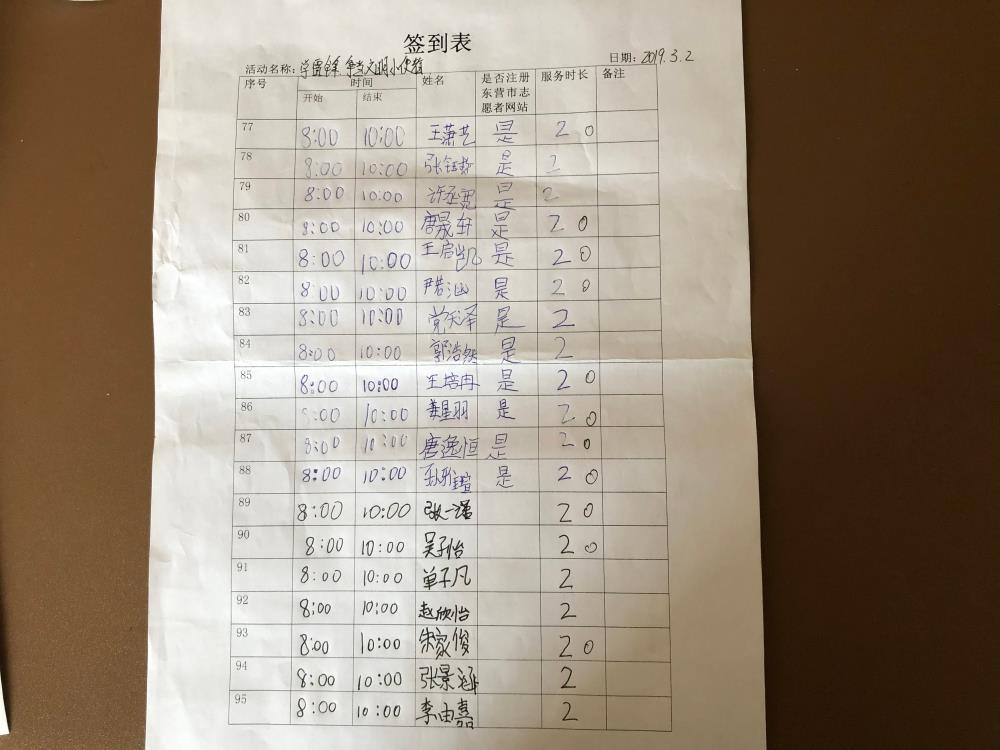 签到表
活动名称：学雷锋 争当文明小使者 日期：2019.3.2
序号 时间 姓名 是否注册东营市志愿者网站 服务时长 备注
开始 结束
77 8:00 10:00 王萧艺 是 2 0
78 8:00 10:00 张钰 是 2
79 8:00 10:00 许丞宽 是 2
80 8:00 10:00 唐晟轩 是 2 0
81 8:00 10:00 王启凯 是 2 0
82 8:00 10:00 尹若汕 是 2 0
83 8:00 10:00 党天泽 是 2
84 8:00 10:00 郭浩然 是 2
85 8:00 10:00 王培冉 是 2 0
86 8:00 10:00 姜星羽 是 2 0
87 8:00 10:00 唐逸恒 是 2 0
88 8:00 10:00 孙瑄 是 2 0
89 8:00 10:00 张一诺 2 0
90 8:00 10:00 吴子怡 2 0
91 8:00 10:00 单子凡 2
92 8:00 10:00 赵欣怡 2
93 8:00 10:00 朱家俊 2 0
94 8:00 10:00 张景涵 2
95 8:00 10:00 李由嘉 2